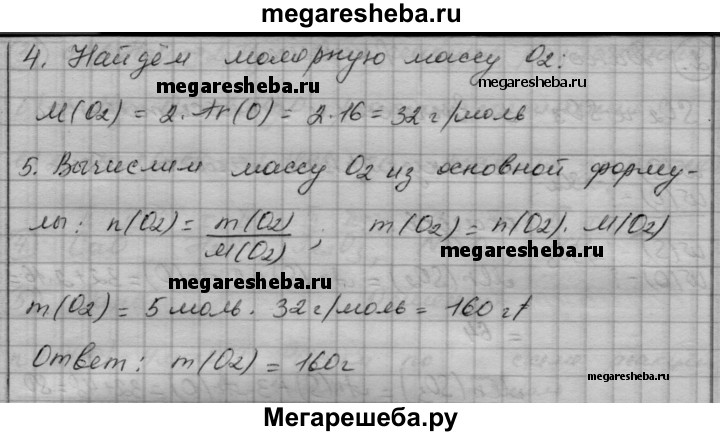 megaresheba.ru
4. Найдём молярную массу O2:
megaresheba.ru
megaresheba.ru
M(O2) = 2. Ar(O) = 2.16 = 32 г/моль
5. Вычислим массу O2 из основной форму-
лы: n(O2) = m(O2)/M(O2); m(O2) = n(O2). M(O2)
megaresheba.ru
megaresheba.ru
m(O2) = 5 моль. 32 г/моль = 160 г
Ответ: m(O2) = 160г
megaresheba.ru
Мегарешеба.ру